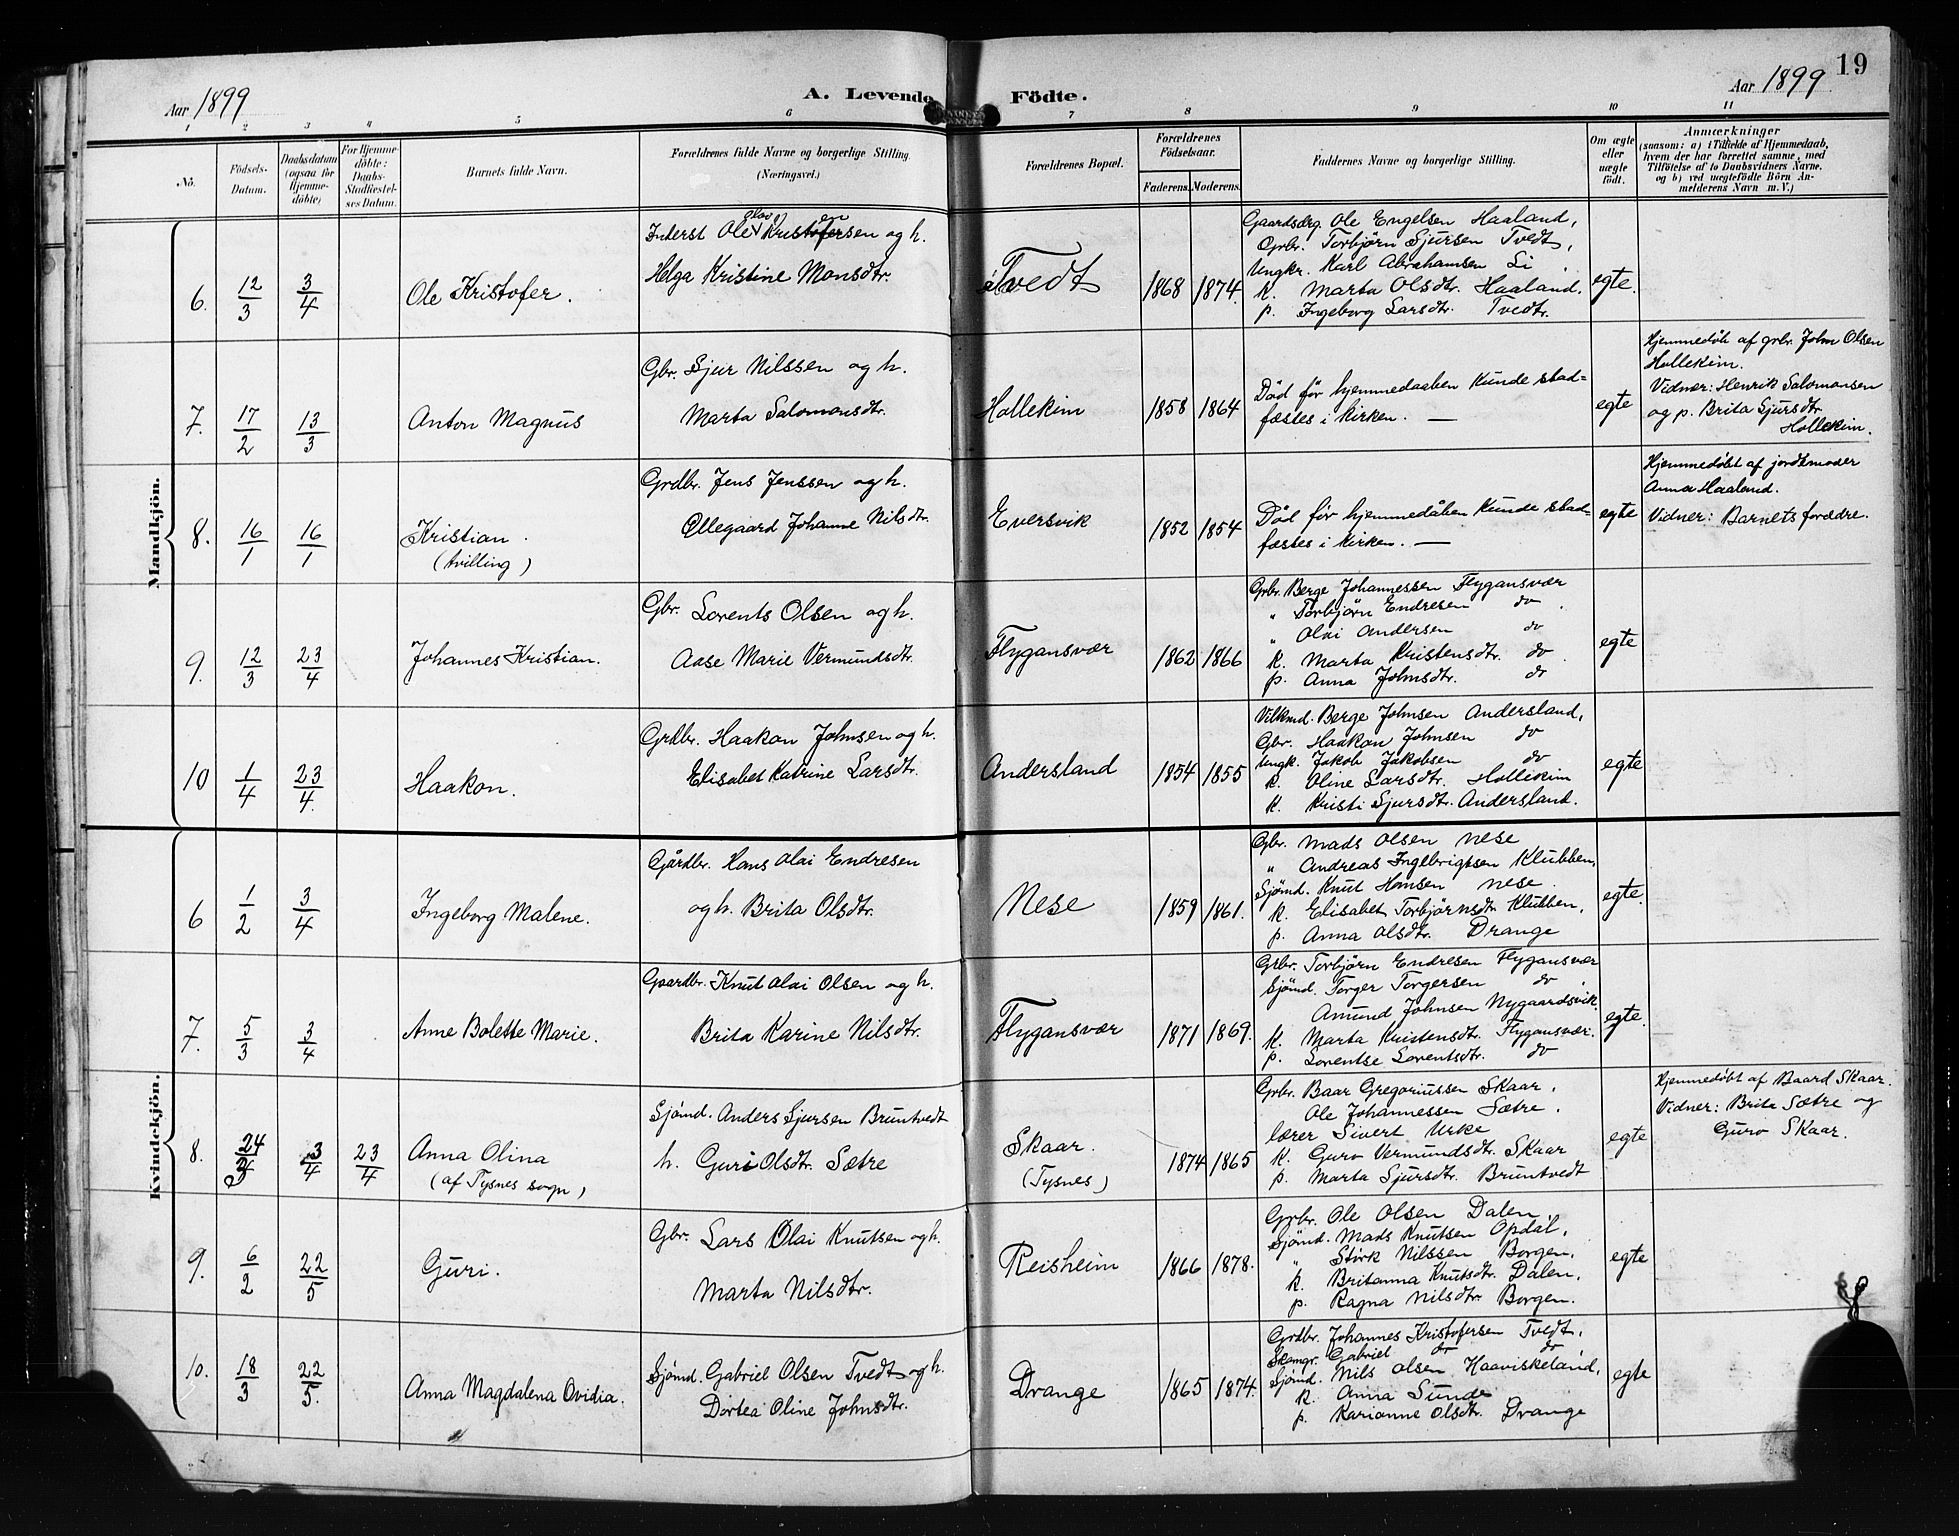 19
Aar 1899
A. Levende Födte.
Aar 1899
1 2 3 4 5 6 7 8 9 10 11
No.
Födsels-Datum.
Daabsdatum (ogsaa for Hjemme-döbte)
For Hjemme-döbte: Daabs-Stadfæstel-ses Datum.
Barnets fulde Navn.
Forældrenes fulde Navne og borgerlige Stilling. (Næringsvei.)
Forældrenes Bopæl.
Forældrenes Födselsaar.
Faderens. Moderens.
Faddernes Navne og borgerlige Stilling.
Om ægte eller uægte födt.
Anmærkninger
(saasom: a) i Tilfælde af Hjemmedaab,
hvem der har forrettet samme, med
Tilföielse af to Daabsvidners Navne,
og b) ved uægtefödte Börn An-
melderens Navn m. V.)
Mandkjön.
6. 12/3 3/4 Ole Kristofer.
Inderst Ole Olai Kristofersen og h.
Helga Kristine Monsdtr.
Tvedt 1868 1874.
Gaardsdrg. Ole Engelsen Haaland,
Grbr. Torbjörn Sjursen Tvedt,
Ungkr. Karl Abrahamsen Li
K. Marta Olsdtr. Haaland.
p. Ingeborg Larsdtr. Tvedt.
egte.
7. 17/2 13/3 Anton Magnus
Gbr. Sjur Nilssen og h.
Marta Salomonsdtr.
Hollekim 1858 1864
Död før hjemmedaaben kunde stad-
fæstes i kirken. —
egte
Hjemmedöb af grbr. John Olsen
Hollekim.
Vidner: Henrik Salomonsen
og p. Brita Sjursdtr.
Hollekim.
8. 16/1 16/1 Kristian.
(tvilling)
Grdbr. Jens Jenssen og h.
Ellegaard Johanne Nilsdtr.
Eversvik 1852 1854
Död før hjemmedåben kunde stad-
fæstes i kirken. —
egte
Hjemmedöbt af jordemoder
Anna Haaland.
Vidner: Barnets forædre.
9. 12/3 23/4 Johannes Kristian.
Gbr. Lorents Olsen og h.
Aase Marie Vermundsdtr.
Flygansvær 1862 1866
Grbr. Berge Johannessen Flygansvær
" Torbjörn Endresen do
" Olai Andersen do
K. Marta Kristensdtr. do
p. Anna Johnsdtr. do
egte
10 1/4 23/4. Haakon.
Grdbr. Haakon Johnsen og h.
Elisabet Katrine Larsdtr.
Andersland 1854 1855
Vilkmd. Berge Johnsen Andersland,
Gbr. Haakon Johnsen do
Ungk. Jakob Jakobsen do
K. Oline Larsdtr. Hollekim
K. Kristi Sjursdtr. Andersland.
egte
Kvindekjön.
6 1/2 3/4 Ingeborg Malene.
Gårdbr. Hans Olai Endresen
og h. Brita Olsdtr.
Nese 1859 1861.
Gbr. Mads Olsen Nese
" Andreas Ingebrigtsen Klubben,
Sjömd. Knut Hansen Nese
K. Elisabet Torbjörnsdtr. Klubben,
p. Anna Olsdtr. Drange
egte.
7. 5/3 3/4 Anne Bolette Marie.
Gaardbr. Knut Olai Olsen og h.
Brita Karine Nilsdtr.
Flygansvær 1871 1869.
Grbr. Torbjörn Endresen Flygansvær
Sjömd. Torger Torgersen do,
Amund Johnsen Nygaardsvik
K. Marta Kristensdtr. Flygansvær.
p. Lorentse Lorentsdtr. do
egte.
8. 24/3 3/4 23/4 Anna Olina
(af Tysnes sogn)
Sjömd. Anders Sjursen Bruntvedt
h. Guri Olsdtr. Sætre
Skaar.
(Tysnes)
1874 1865
Grbr. Baar Gregoriussen Skaar,
Ole Johannessen Sætre.
lærer Sivert Urke
K. Guro Vermundsdtr. Skaar
p. Marta Sjursdtr. Bruntvedt
egte
Hjemmedöbt af Baard Skaar.
Vidner: Brita Sætre og
Guro Skaar.
9. 6/2 22/5 Guri.
Gbr. Lars Olai Knutsen og h.
Marta Nilsdtr.
Reisheim 1866 1878.
Grbr. Ole Olsen Dalen,
Sjömd. Mads Knutsen Opdal,
" Störk Nilssen Borgen,
K. Britanna Knutsdtr. Dalen,
p. Ragna Nilsdtr Borgen.
egte
10. 18/3 22/5. Anna Magdalena Ovidia.
Sjömd. Gabriel Olsen Tvedt og h.
Dortea Oline Johnsdtr.
Drange 1865 1874.
Grdbr. Johannes Kristofersen Tvedt,
Gabriel do do
Sjömd. Nils Olsen Haaviskeland,
K. Anna Sunde
p. Karianne Olsdtr. Drange
egte